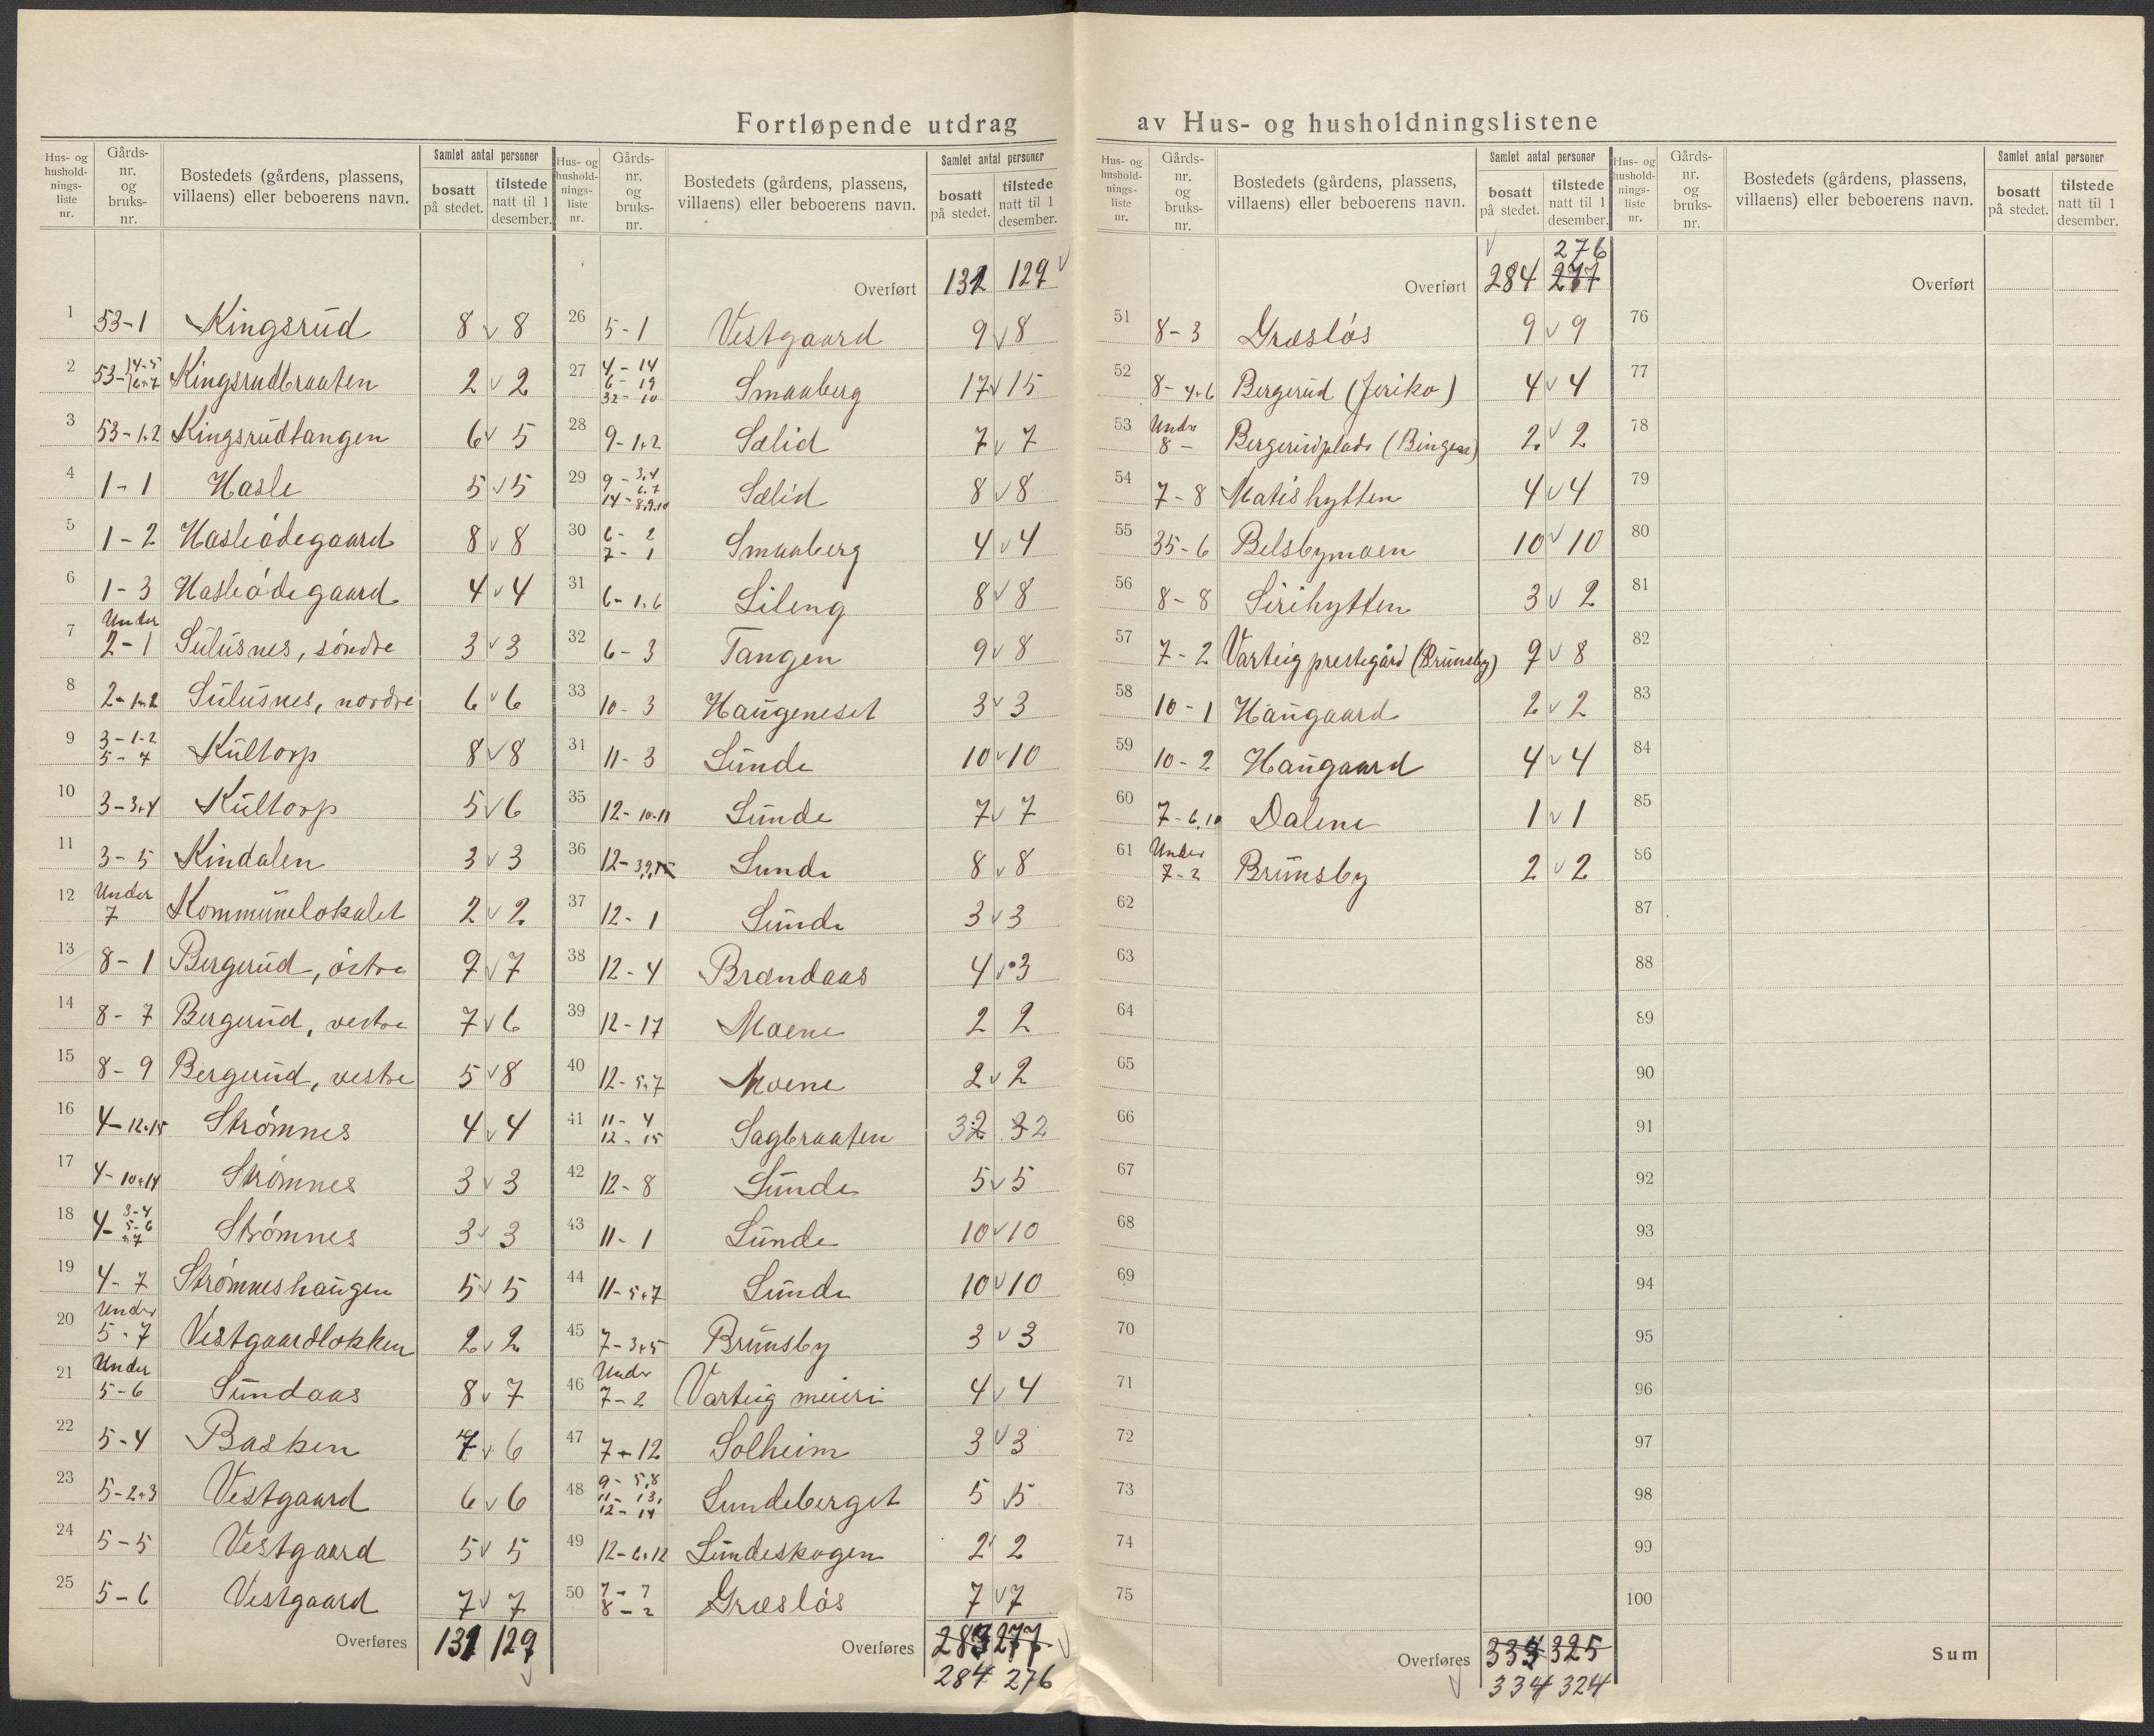 Fortløpende utdrag av Hus- og husholdningslistene
Hus- og husholdnings-liste nr. | Gårds-nr. og bruks-nr. | Bostedets (gårdens, plassens, villaens) eller beboerens navn. | Samlet antal personer | bosatt på stedet. | tilstede natt til 1 desember.
1 53-1 Kingsrud 8 v 8
2 53-14-5 16+7 Kingsrudbraaten 2 v 2
3 53-1,2 Kingsrudtangen 6 v 5
4 1-1 Hasle 5 v 5
5 1-2 Hasleødegaard 8 v 8
6 1-3 Hasleødegaard 4 v 4
7 Under 2-1 Sulusnes, søndre 3 v 3
8 2-1+2 Sulusnes, nordre 6 v 6
9 3-1-2 5-4 Kultorp 8 v 8
10 3-3+4 Kultorp 5 v 6
11 3-5 Kindalen 3 v 3
12 Under 7 Kommunelokalet 2 v 2
13 8-1 Bergerud, østre 9 v 7
14 8-7 Bergerud, vestre 7 v 6
15 8-9 Bergerud, vestre 5 v 8
16 4-12+15 Strømnes 4 v 4
17 4-10+14 Strømnes 3 v 3
18 4-3-4 5-6 Strømnes 3 v 3
19 4-7 Strømneshaugen 5 v 5
20 Under 5-7 Vestgaardløkken 2 v 2
21 Under 5-6 Sundaas 8 v 7
22 5-4 Basken 7 v 6
23 5-2+3 Vestgaard 6 v 6
24 5-5 Vestgaard 5 v 5
25 5-6 Vestgaard 7 v 7
Overføres 131 129 v
Hus- og husholdnings-liste nr. | Gårds-nr. og bruks-nr. | Bostedets (gårdens, plassens, villaens) eller beboerens navn. | Samlet antal personer | bosatt på stedet. | tilstede natt til 1 desember.
Overført 131 129 v
26 5-1 Vestgaard 9 v 8
27 4-14 6-19 32-10 Smaaberg 17 v 15
28 9-1+2 Sælid 7 v 7
29 9-3,4 6,7 14-8,9,10 Sælid 8 v 8
30 6-2 7-1 Smaaberg 4 v 4
31 6-1,6 Lileng 8 v 8
32 6-3 Tangen 9 v 8
33 10-3 Haugeneset 3 v 3
34 11-3 Sunde 10 v 10
35 12-10-11 Sunde 7 v 7
36 12- Sunde 8 v 8
37 12-1 Sunde 3 v 3
38 12-4 Brændaas 4 v 3
39 12-17 Moene 2 2
40 12-5+7 Moene 2 v 2
41 11-4 12-15 Sagbraaten 32 32
42 12-8 Sunde 5 v 5
43 11-1 Sunde 10 v 10
44 11-5+7 Sunde 10 v 10
45 7-3+5 Brunsby 3 v 3
46 Under 7-2 Varteig meieri 4 v 4
47 7-12 Solheim 3 v 3
48 9-5,8 11-13, 12-14 Sundeberget 5 v 5
49 12-6+12 Sundeskogen 2 2
50 7-7 8-2 Græsløs 7 v 7
Overføres 283 277 v
284 276
Hus- og husholdnings-liste nr. | Gårds-nr. og bruks-nr. | Bostedets (gårdens, plassens, villaens) eller beboerens navn. | Samlet antal personer | bosatt på stedet. | tilstede natt til 1 desember.
v 276
Overført 284 277
51 8-3 Græsløs 9 v 9
52 8-4+6 Bergerud (Jeriko) 4 v 4
53 Under 8- Bergerudplads (Bingen) 2 v 2
54 7-8 Matishytten 4 v 4
55 35-6 Belsbymoen 10 v 10
56 8-8 Sirihytten 3 v 2
57 7-2 Varteig prestegård (Brunsby) 9 v 8
58 10-1 Haugaard 2 v 2
59 10-2 Haugaard 4 v 4
60 7-6,10 Dalene 1 v 1
61 Under 7-2 Brunsby 2 v 2
62
63
64
65
66
67
68
69
70
71
72
73
74
75
Overføres 333 325
v 334 324
Hus- og husholdnings-liste nr. | Gårds-nr. og bruks-nr. | Bostedets (gårdens, plassens, villaens) eller beboerens navn. | Samlet antal personer | bosatt på stedet. | tilstede natt til 1 desember.
Overført
76
77
78
79
80
81
82
83
84
85
86
87
88
89
90
91
92
93
94
95
96
97
98
99
100
Sum